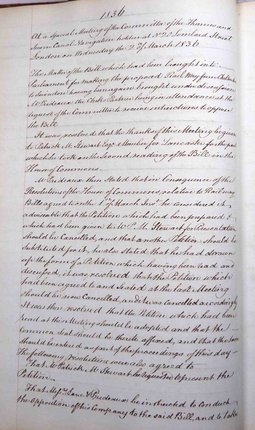 1836
At a Special Meeting of the Committee of the Thames and
Severn Canal Navigation holden at No 20 Lombard Street
London on Wednesday the 2nd of March 1836
The Matter of the Bill which had been brought into
Parliament for making the proposed Rail Way from Cheltenham
to Swindon having been again brought under discussion
Mr Prideaux the Clerk Petition being in attendance at the
request of the Committee to receive instructions to oppose
the Bill.
It was resolved that the thanks of this Meeting be given
to Patrick M. Stewart Esqr Member for Lancaster for the part
which he took on the second reading of the Bill in the
House of Commons.
Mr Prideaux then Stated that in Consequence of the
Resolution of the House of Commons relative to Railway
Bills agreed to on the 1st March Inst he considered it
advisable that the Petition which had been prepared &
which had been given to Mr P. M. Stewart for Presentation
should be Cancelled, and that another Petition should be
Substituted for it, he also stated that he had drawn
up the form of a Petition which having been read and
discussed, it was resolved that the Petition which
had been agreed to and Sealed at the last Meeting
Should be now Cancelled, and it was Cancelled accordingly
It was then resolved that the Petition which had been
read at this Meeting should be adopted and that the
Common Seal should be thereto affixed, and that the same
should be entered as part of the proceedings of this day
The following resolutions were also agreed to
That Mr Patrick M. Stewart be requested to present the
Petition.
That Messrs Lane & Prideaux be instructed to conduct
the opposition of this Company to the said Bill, and to take